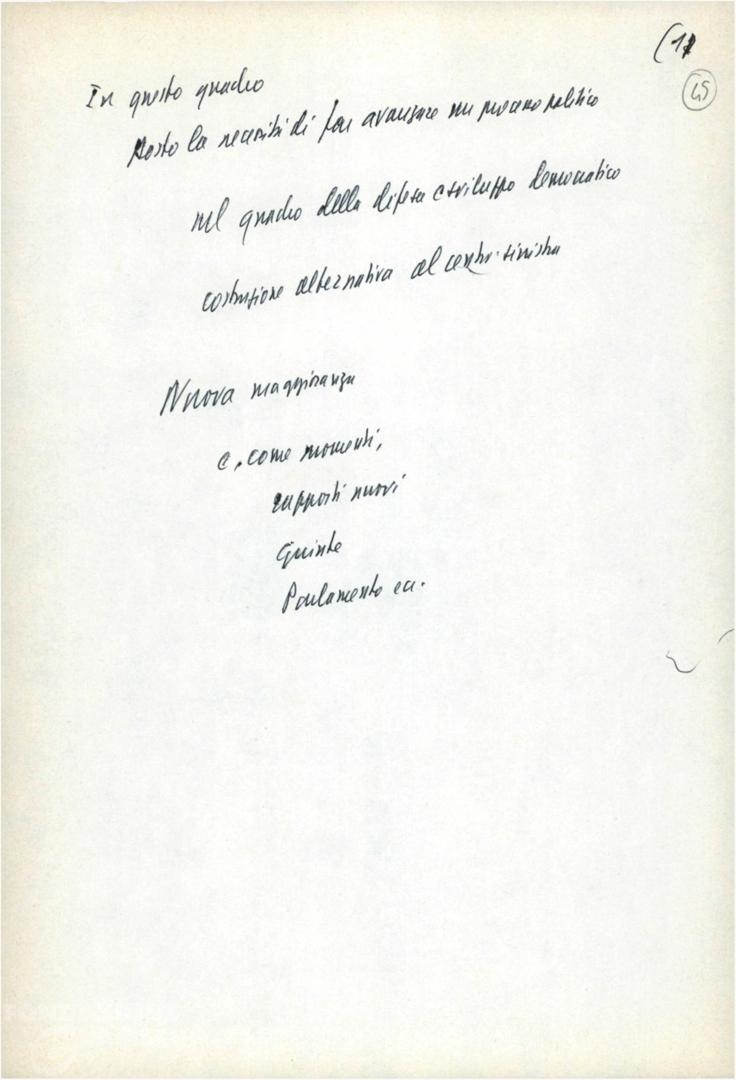 (17
45
In questo quadro
Posto la necessità di far avanzare un processo politico
nel quadro della difesa e sviluppo democratico
costruzione alternativa al centro-sinistra
Nuova maggioranza
e, come momenti,
rapporti nuovi
Giunte
Parlamento ecc.